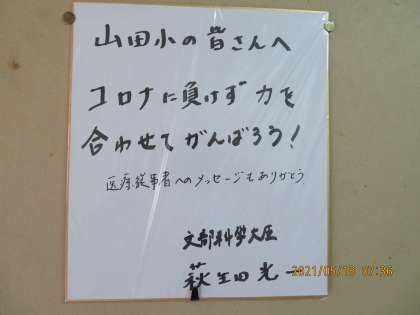 山田小の皆さんへ
コロナに負けず力を
合わせてがんばろう！
医療従事者へのメッセージもありがとう
文部科学大臣
萩生田光一